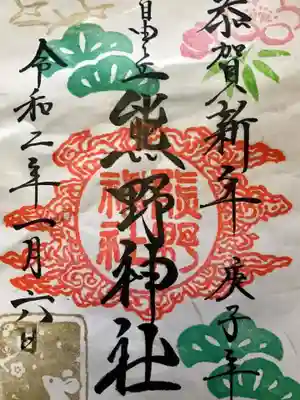 恭賀新年 庚子年
自由が丘熊野神社
熊野神社
令和二年一月六日